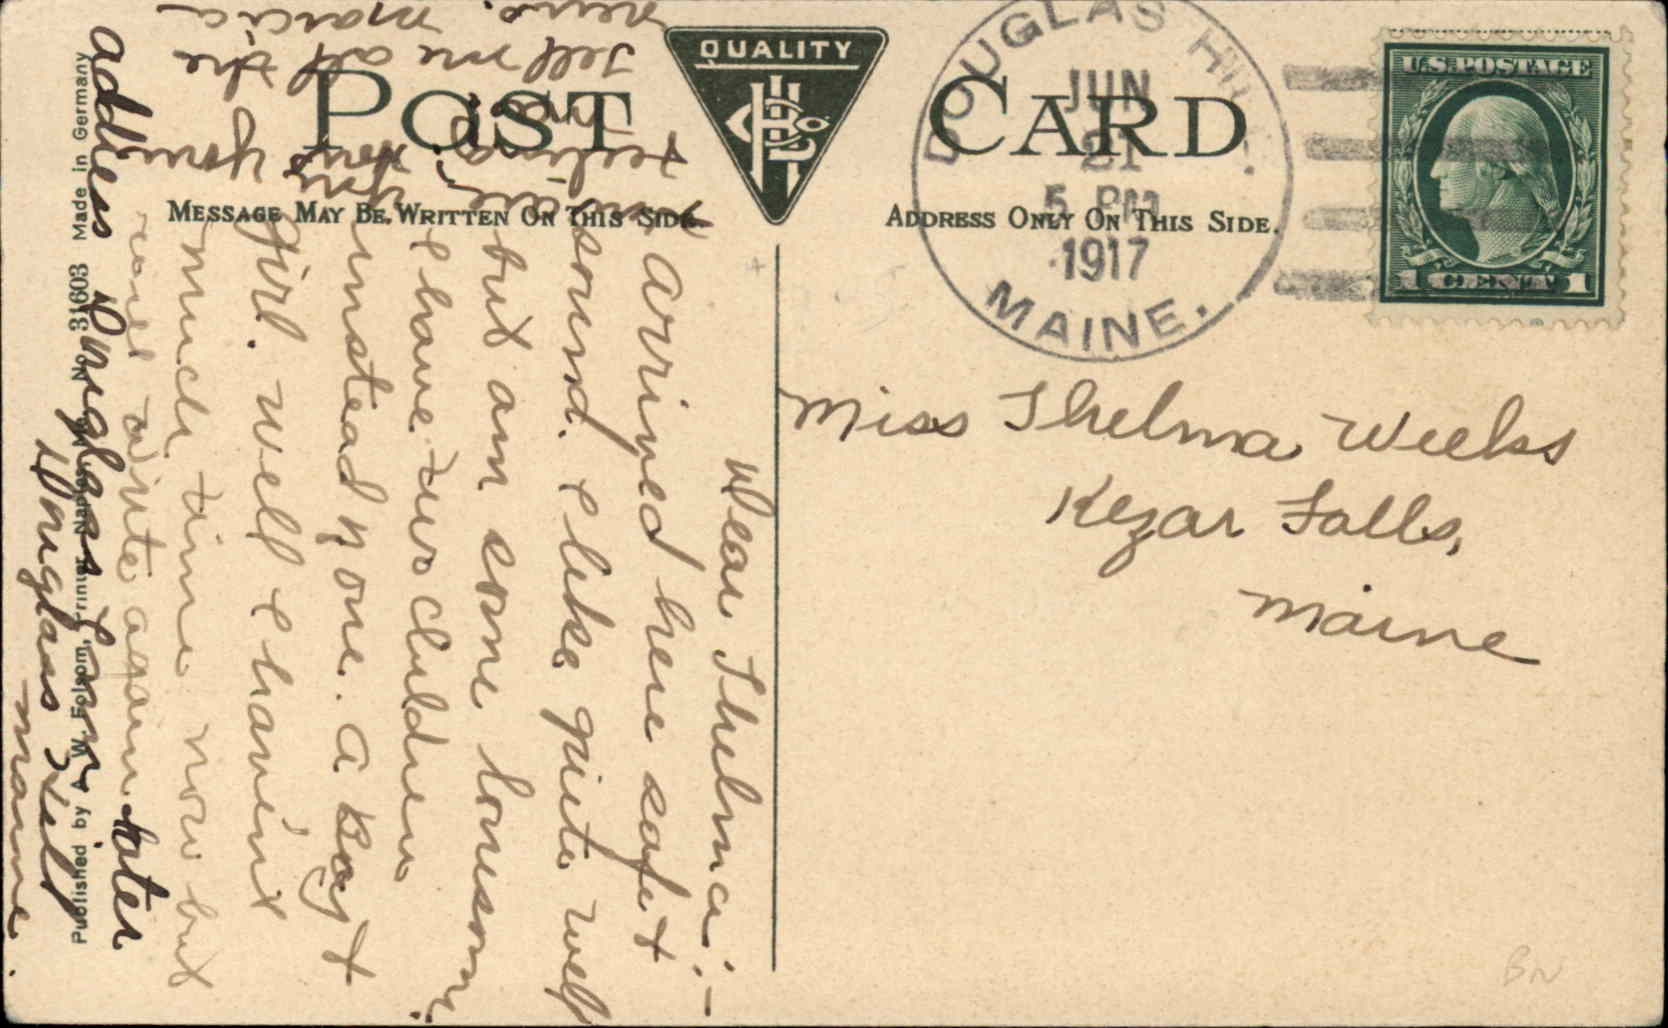 QUALITY
POST CARD
MESSAGE MAY BE WRITTEN ON THIS SIDE.
ADDRESS ONLY ON THIS SIDE.
DOUGLAS HILL.
JUN
21
5 PM
1917
MAINE.
U.S. POSTAGE
1 CENT 1
Miss Thelma Weeks
Kezar Falls,
Maine
Dear Thelma:-
arrived here safe +
sound. I like quite well
but am some lonesome.
I have two children
instead of one. a Boy +
girl. Well I havent
much time now but
will write again later
address Douglass Farm
Douglass Hill
Maine.
How are you
feeling
Tell me all the
news. Marcia
Published by A. W. Folsom, Printer, Naples, Me. No. 31603 Made in Germany
BN